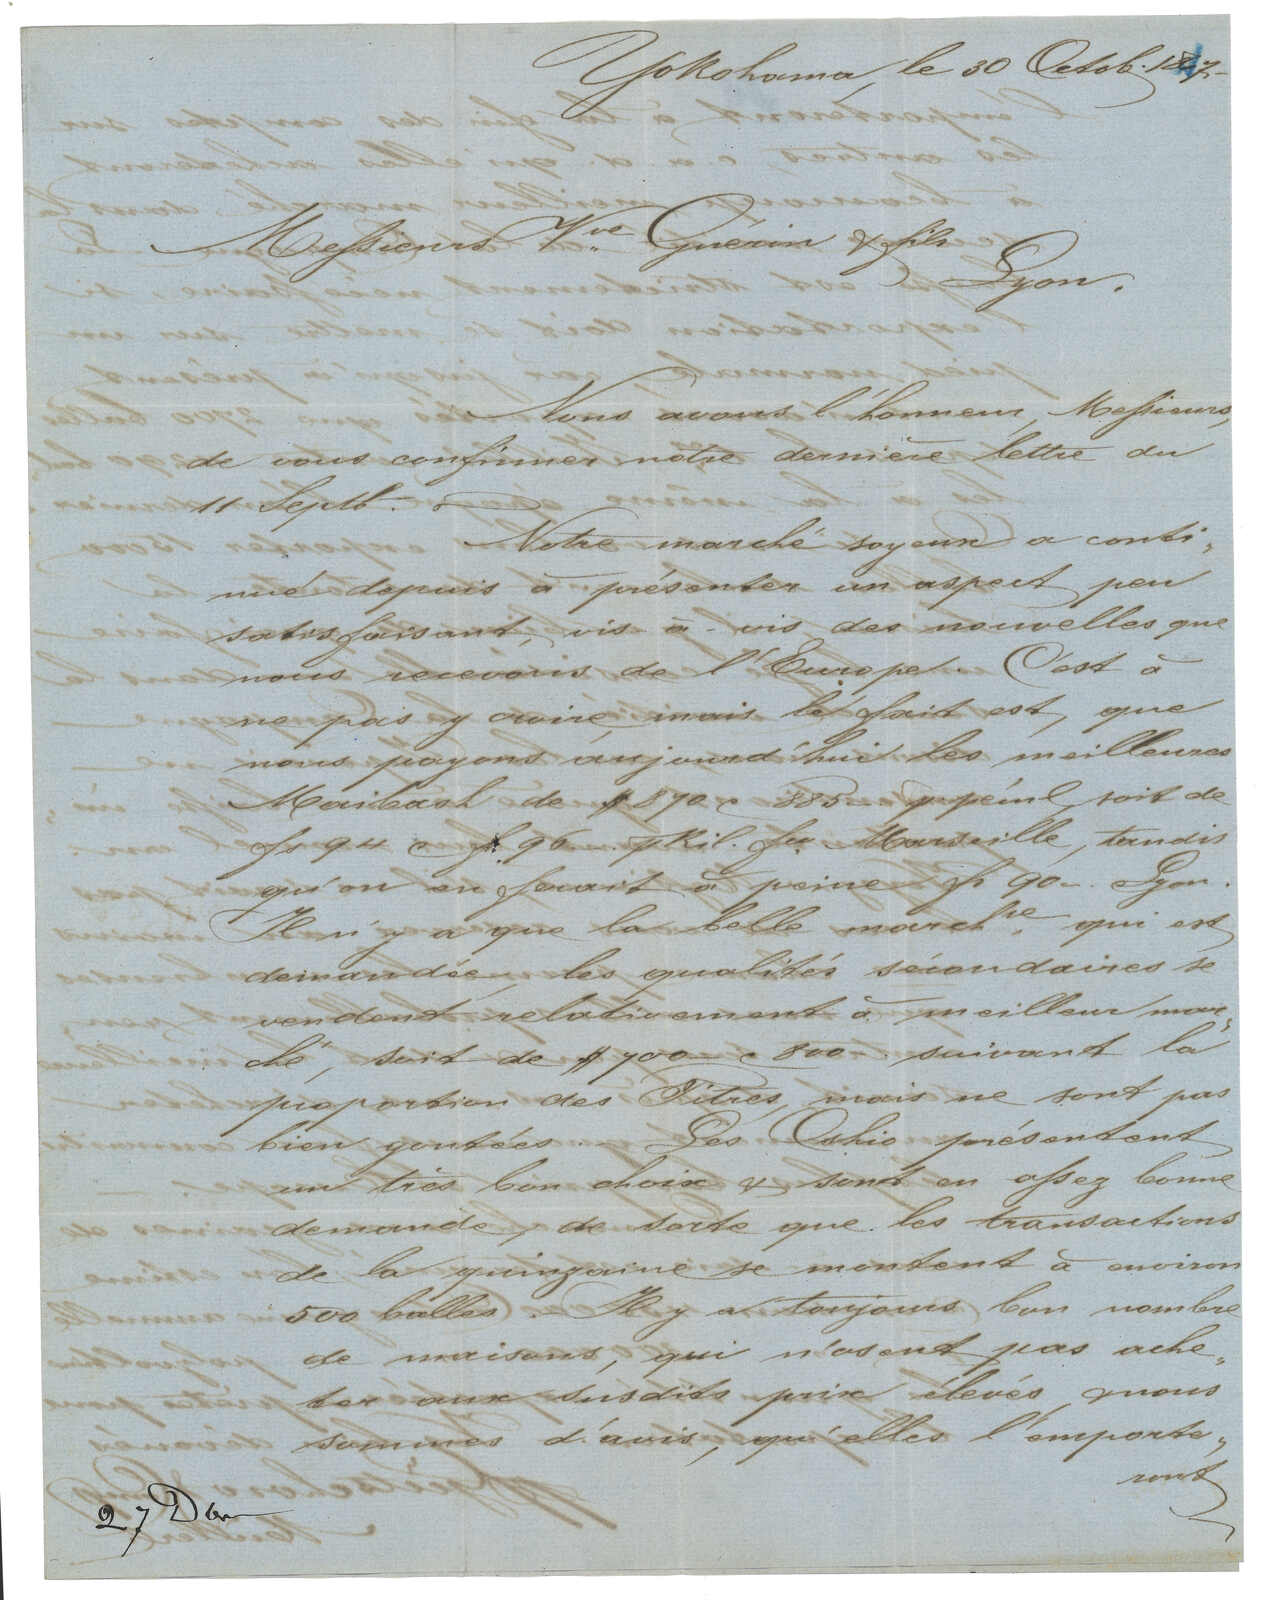 Yokohama, le 30 Octob. 1867.
Messieurs Vve Guérin & fils
Lyon.
Nous avons l'honneur, Messieurs,
de vous confirmer notre dernière lettre du
11 Septb.
Notre marché soyeux a conti-
nué depuis à présenter un aspect peu
satisfaisant, vis-à-vis des nouvelles que
nous recevons de l'Europe. C'est à
ne pas y croire, mais le fait est, que
nous payons aujourd'hui les meilleures
Maibash de $ 870 à 885 p pécul, soit de
fs 94 à fs 96 p Kil. fco Marseille, tandis
qu'on en ferait à peine fs 90 Lyon.
Il n'y a que la belle march.se qui est
demandée, les qualités sécondaires se
vendent relativement à meilleur mar-
ché, soit de $ 700 à 800 suivant la
proportion des Titres, mais ne sont pas
bien goutées. Les Oshio présentent
un très bon choix & sont en assez bonne
demande, de sorte que les transactions
de la quinzaine se montent à environ
500 balles. Il y a toujours bon nombre
de maisons, qui n'osent pas ache-
ter aux susdits prix élevés, & nous
sommes d'avis, qu'elles l'emporte-
ront
27 Dbr